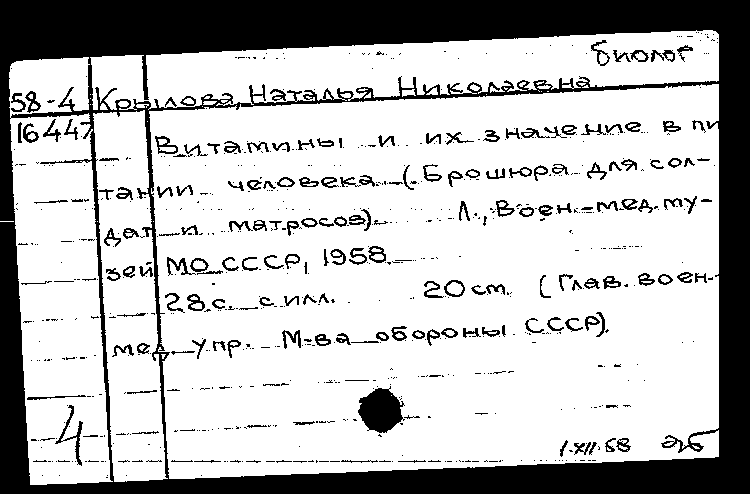 биолог
58-4 Крылова, Наталья Николаевна.
16447
Витамины и их значение в пи
тании человека (Брошюра для сол-
дат и матросов). Л., Воен.-мед. му-
зей МО СССР, 1958.
28 с. с илл. 20 см. (Глав. воен.-
мед. упр. М-ва обороны СССР).
4
1.XII.58